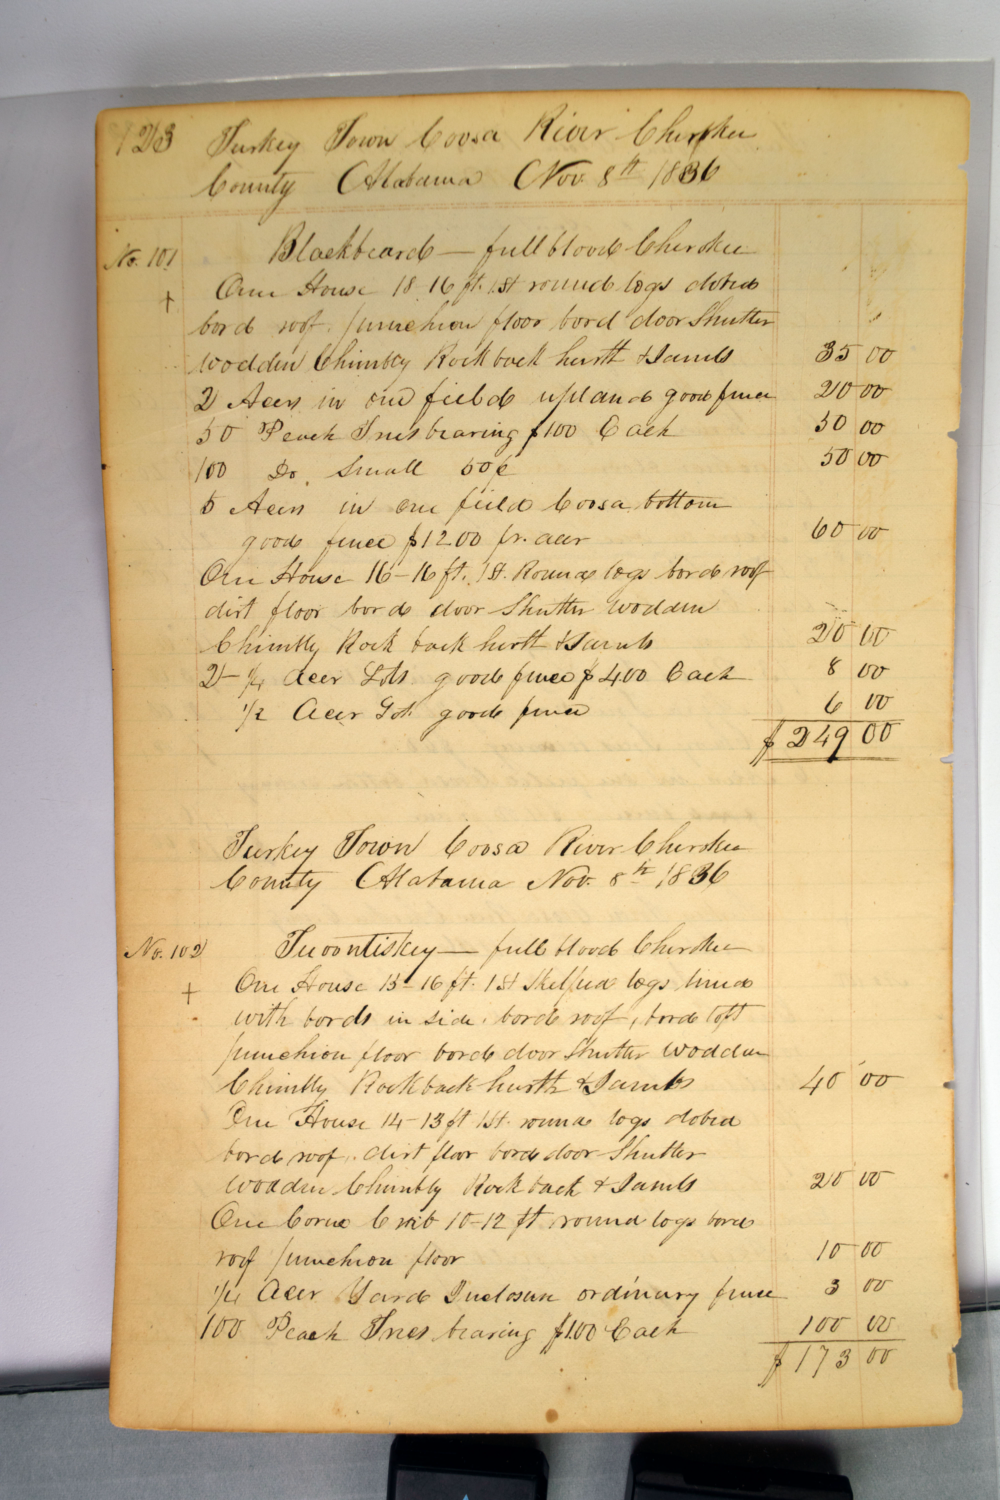 123 Turkey Town Coosa River Cherokee
County Alabama Nov. 8th 1836
No. 101 Blackbeard — full blood Cherokee
+ One House 18 16 ft. 1 St round logs dobed
bord roof. punchion floor bord door Shutter
wodden Chimbly Rock back hurth & Jambs 35 00
2 Acers in one field upland good fence 20 00
50 Peach Trees bearing $100 Each 50 00
100 Do. Small 50¢ 50 00
5 Acers in one field Coosa bottom
good fence $1200 pr. acer 60 00
One House 16–16 ft. 1 St. Round logs bord roof
dirt floor bord door Shutter wodden
Chimbly Rock back hurth & Jambs 20 00
2– 1/4 Acer Lots good fence $400 Each 8 00
1/2 Acer Lot good fence 6 00
$249 00
Turkey Town Coosa River Cherokee
County Alabama Nov. 8th 1836
No. 102 Twoontiskey — full blood Cherokee
+ One House 15–16 ft. 1 St Skelped logs lined
with bords in side. bord roof, bord loft
punchion floor bord door Shutter wodden
Chimbly Rock back hurth & Jambs 40 00
One House 14–13 ft 1 St. round logs dobed
bord roof. dirt floor bord door Shutter
wodden Chimbly Rock back & Jambs 20 00
One Corne Crib 10–12 ft round logs bord
roof punchion floor 10 00
1/4 Acer Yard Inclosure ordinary fence 3 00
100 Peach Trees bearing $1.00 Each 100 00
$173 00